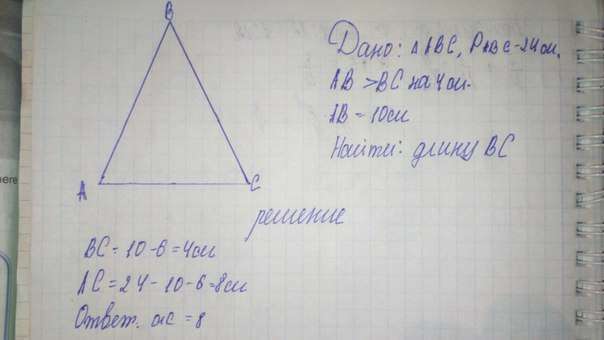 B
Дано: △ABC, PABC-24см.
AB >BC на 4см.
AB = 10см
Найти: длину BC
A
C
решение
BC = 10-6=4см
AC=24-10-6=8см
Ответ. ac =8